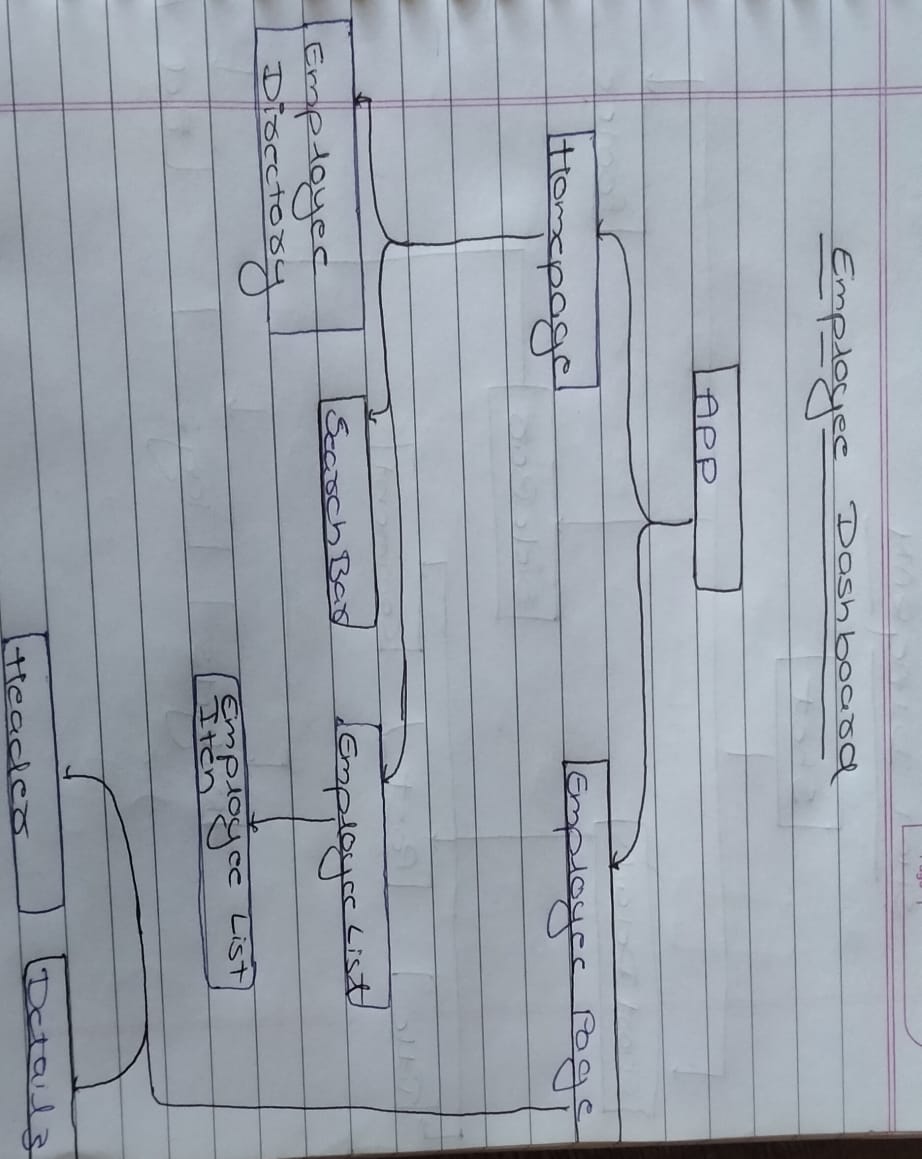 Employee Dashboard
APP
Homepage
Employee Page
Employee
Directory
Search Bar
Employee List
Employee List
Item
Header
Details